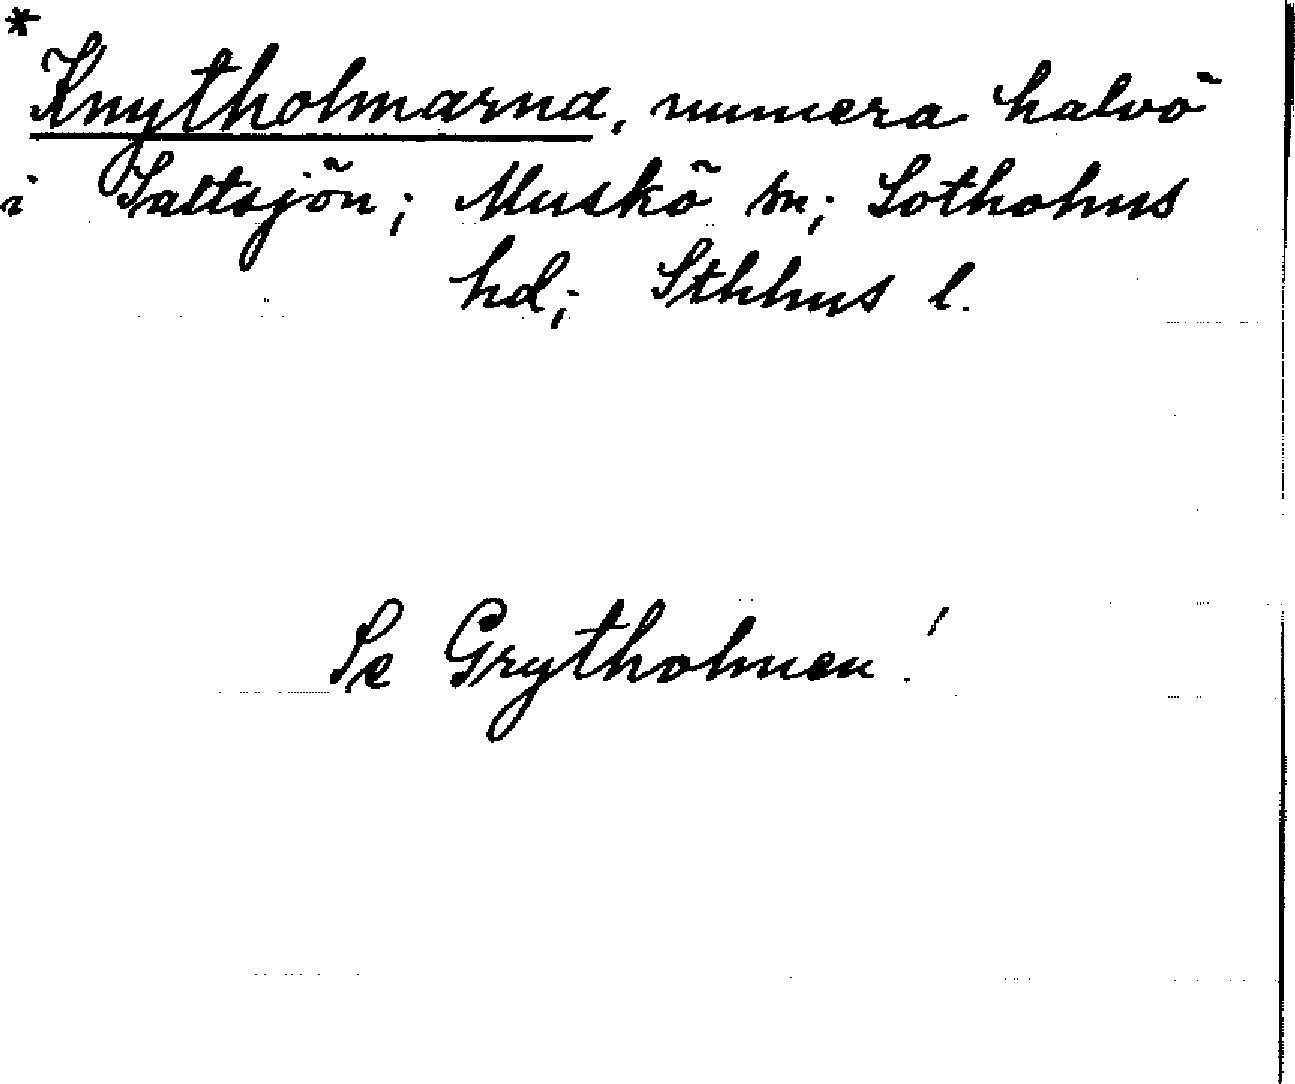 *
Knytholmarna, numera halvö
i Saltsjön; Muskö sn; Sotholms
hd; Sthlms l.
Se Grytholmen!